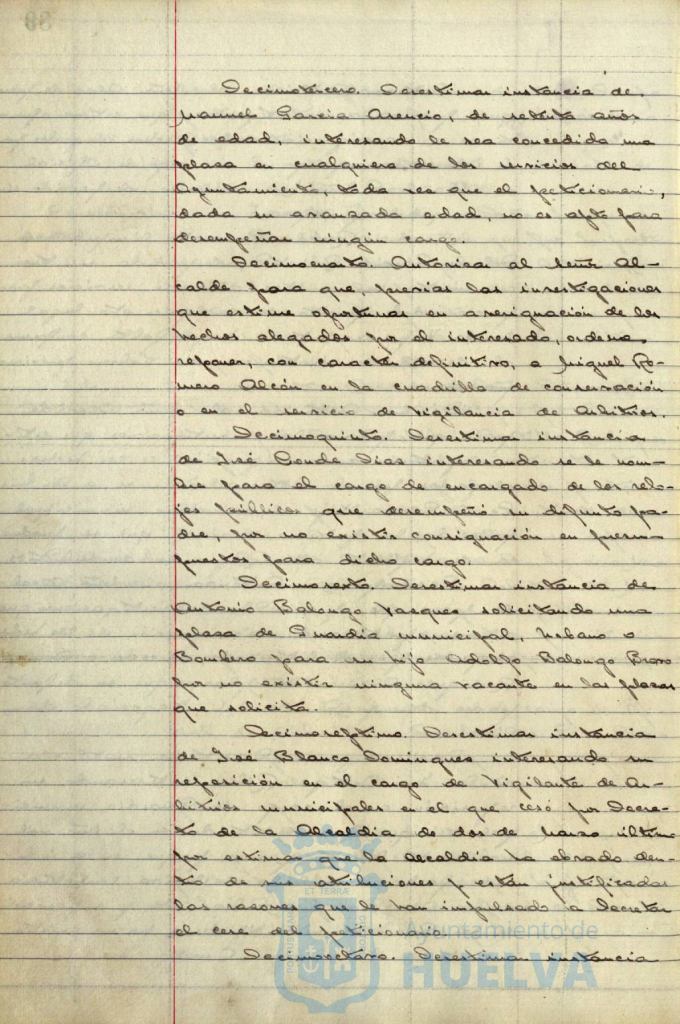 Decimotercero. Desestimar instancia de
Manuel Garcia Asencio, de setenta años
de edad, interesando le sea concedida una
plaza en cualquiera de los servicios del
Ayuntamiento, toda vez que el peticionario,
dada su avanzada edad, no es apto para
desempeñar ningún cargo.
Decimocuarto. Autorizar al Señor Al-
calde para que, previas las investigaciones
que estime oportunas en averiguación de los
hechos alegados por el interesado, ordene
reponer, con caracter definitivo, a Miguel Ro-
mero Alcón en la cuadrilla de conservación
o en el servicio de Vigilancia de Arbitrios.
Decimoquinto. Desestimar instancia
de José Conde Dias interesando se le nom-
bre para el cargo de encargado de los relo-
jes públicos que desempeñó su difunto pa-
dre, por no existir consignación en presu-
puestos para dicho cargo.
Decimosexto. Desestimar instancia de
Antonio Balongo Vazquez solicitando una
plaza de Guardia municipal, Urbano o
Bombero para su hijo Adolfo Balongo Bravo
por no existir ninguna vacante en las plazas
que solicita.
Decimoseptimo. Desestimar instancia
de José Blanco Dominguez interesando su
reposición en el cargo de Vigilante de Ar-
bitrios municipales en el que cesó por Decre-
to de la Alcaldia de dos de Marzo último
por estimar que la alcaldia ha obrado den-
tro de sus atribuciones y están justificadas
las razones que le han impulsado a Decretar
el cese del peticionario.
Decimoctavo. Desestimar instancia
Ayuntamiento de
HUELVA